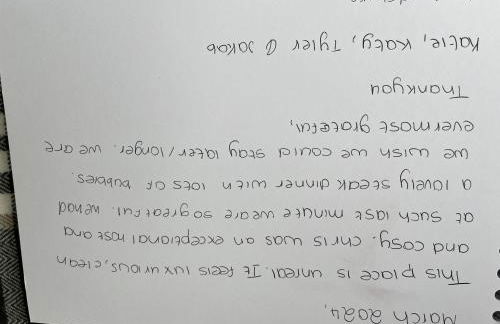 March 2024,
This place is unreal. It feels luxurious, clean
and cosy. Chris was an exceptional host and
at such last minute we are so greatful. We had
a lovely steak dinner with lots of bubbles.
We wish we could stay later/longer. We are
evermost grateful,
Thankyou
Katie, Katy, Tyler & Jakob